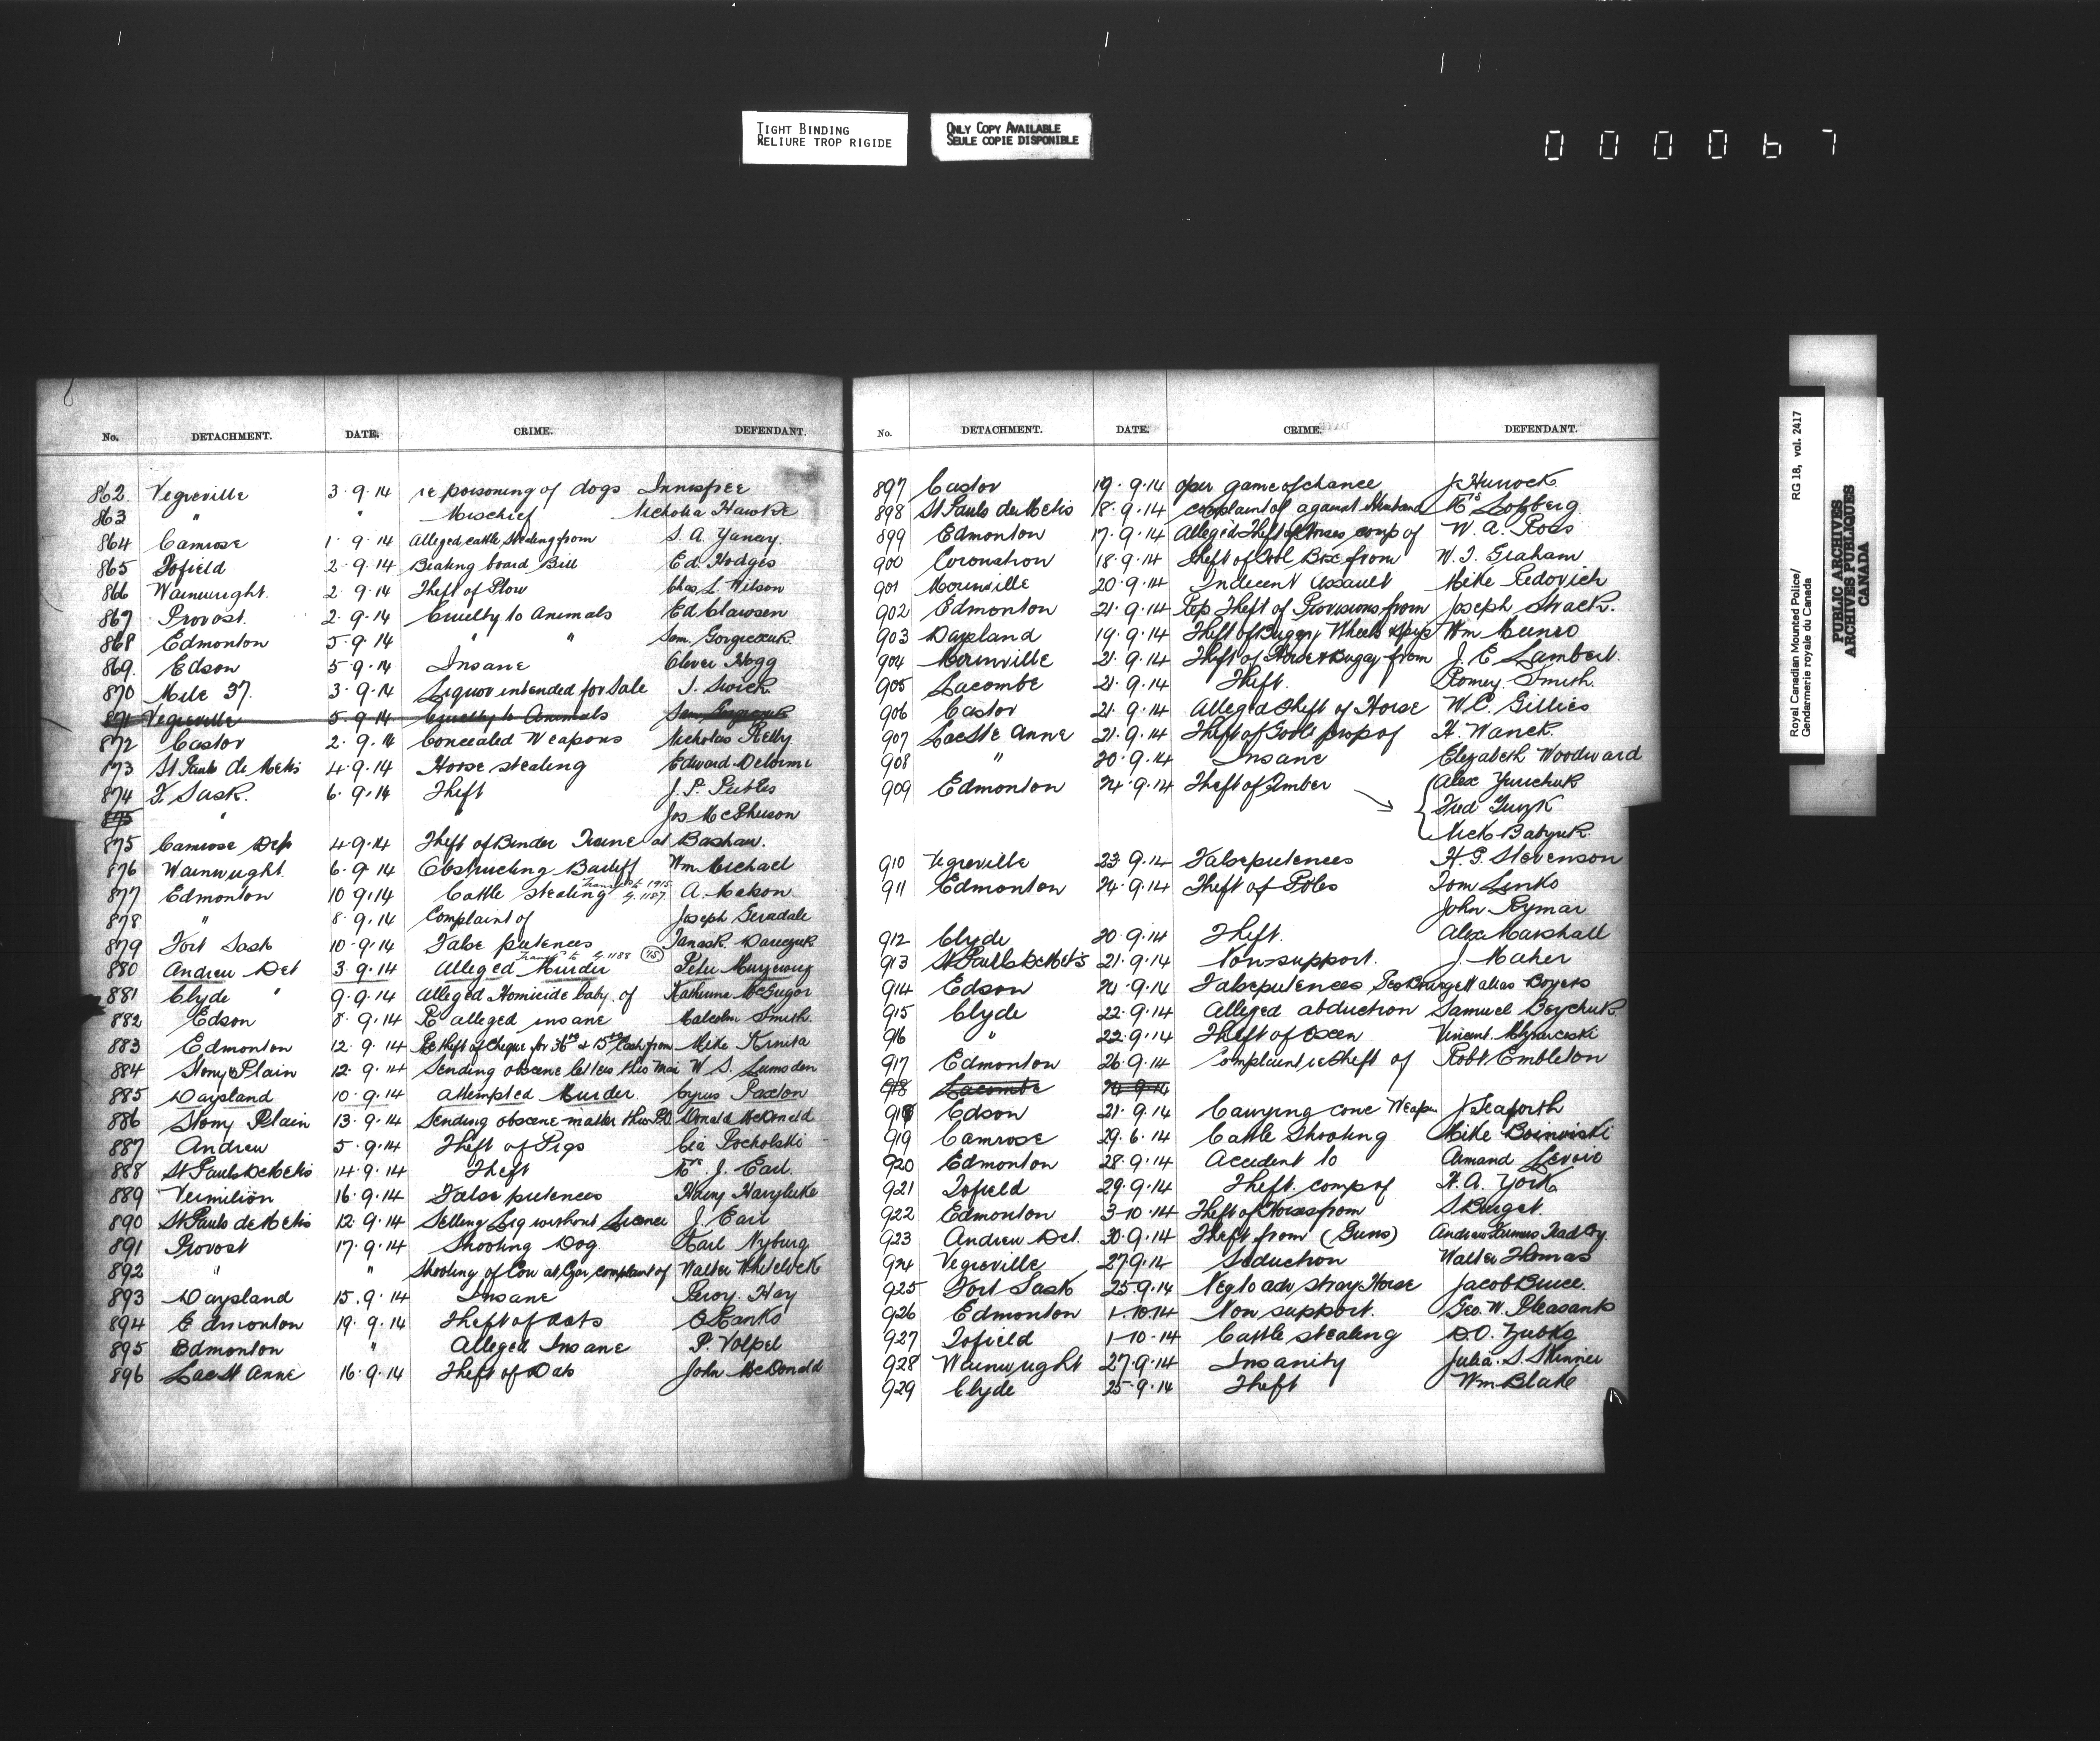 TIGHT BINDING
RELIURE TROP RIGIDE
ONLY COPY AVAILABLE
SEULE COPIE DISPONIBLE
000067
No. DETACHMENT. DATE. CRIME. DEFENDANT.
862. Vegreville 3.9.14 re poisoning of dogs Innisfree
863 " " Mischief Nicholia
864 Camrose 1.9.14 Alleged cattle Stealing from S. A. Yancey.
865 Tofield 2.9.14 Beating board Bill Ed. Hodges
866 Wainwright. 2.9.14 Theft of Plow Chas. L. Wilson
867 Provost. 2.9.14 Cruelty to Animals Ed Clawson
868 Edmonton 5.9.14 " " Sam.
869. Edson 5.9.14 Insane Oliver Hogg
870 Mile 37. 3.9.14 Liquor intended for Sale J. Swick
871 Vegreville 5.9.14 Cruelty to Animals Sam
872 Castor 2.9.14 Concealed Weapons Nicholas Kelly.
873 St Pauls de Metis 4.9.14 Horse stealing Edward Delorme
874 F. Sask. 6.9.14 Theft J. P. Peebles
875 " Jos McPherson
875 Camrose Dep 4.9.14 Theft of Binder Twine at Bashaw.
876 Wainwright. 6.9.14 Obstructing Bailiff Wm Michael
877 Edmonton 10 9.14 Cattle Stealing Transf to 1915 G. 1187. A. Matson.
878 " 8.9.14 Complaint of Joseph
879 Fort Sask 10.9.14 False pretences
880 Andrew Det 3.9.14 Alleged Murder Transf to G. 1188 (15) Peter
881 Clyde " 9.9.14 Alleged Homicide baby of Katherine McGregor
882 Edson 8.9.14 Re alleged insane Malcolm Smith.
883 Edmonton 12.9.14 Re theft of Cheque for 36 & 15 Cash from Mike
884 Stony Plain 12.9.14 Sending obscene letters thro Mai W. S. Lumsden
885 Daysland 10.9.14 attempted Murder Cyrus Paxton
886 Stony Plain 13.9.14 Sending obscene matter thro P.O. Donald McDonald
887 Andrew 5.9.14 Theft of Pigs
888 St Pauls de Metis 14.9.14 Theft J. Earl.
889 Vermilion 16.9.14 False pretences Harry
890 St Pauls de Metis 12.9.14 Selling Liq without Licence J. Earl
891 Provost 17.9.14 Shooting Dog. Karl Nyburg
892 " " Shooting of Cow at complaint of Walter Whitelock
893 Daysland 15.9.14 Insane Leroy. Hay
894 Edmonton 19.9.14 Theft of oats
895 Edmonton " Alleged Insane P. Volpel
896 Lac St Anne 16.9.14 Theft of Oats John McDonald
No. DETACHMENT. DATE. CRIME. DEFENDANT.
897 Castor 19.9.14 oper game of chance
898 St Pauls de Metis 18.9.14 complaint of against Husband Mrs Lofberg.
899 Edmonton 17.9.14 Alleged Theft of Horses comp of W. A. Ross
900 Coronation 18.9.14 Theft of Tool Box from W. J. Graham
901 Morinville 20.9.14 Indecent Assault Mike Fedovich
902 Edmonton 21.9.14 Rep Theft of Provisions from Joseph Strack.
903 Daysland 19.9.14 Theft of Buggy Wheels Wm Munro
904 Morinville 21.9.14 Theft of Horse & Buggy from J. E Lambert.
905 Lacombe 21.9.14 Theft. Romey. Smith.
906 Castor 21.9.14 Alleged theft of Horse W. C. Gillies
907 Lac Ste Anne 21.9.14 Theft of Tools prop of H. Wanck.
908 " 20.9.14 Insane Elizabeth Woodward
909 Edmonton 24.9.14 Theft of Timber Alex
Fred
Nick Babyuk.
910 Vegreville 23 9.14 False pretences H. G. Stevenson
911 Edmonton 24.9.14 Theft of Poles Tom
John Rymar
912 Clyde 20.9.14 Theft. Alex Marshall
913 St Pauls de Metis 21.9.14 Non-support. J. Maher
914 Edson 24.9.14 False pretences Geo Bourgett alias Boyers
915 Clyde 22.9.14 Alleged abduction Samuel Boychuk
916 " 22.9.14 Theft of Oxen Vincent
917 Edmonton 26.9.14 Complaint re theft of Robt Embleton
918 Lacombe 24.9.14
918 Edson 21.9.14 Carrying conc Weapn J Seaforth
919 Camrose 29.6.14 Cattle Shooting Mike
920 Edmonton 28.9.14 Accident to Armand Lavoie
921 Tofield 29.9.14 Theft. comp of H. A. York
922 Edmonton 3-10.14 Theft of Horses from S Burget.
923 Andrew Det. 30.9.14 Theft from (Guns) Andrew Farmers Trad Coy.
924 Vegreville 27 9.14 Seduction Walter Thomas
925 Fort Sask 25.9.14 Neg to adv stray Horse Jacob Bruce.
926 Edmonton 1-10.14 Non support. Geo. W. Pleasants
927 Tofield 1-10-14 Cattle stealing D.O.
928 Wainwright 27.9.14 Insanity Julia. S. Skinner
929 Clyde 25.9.14 Theft Wm Blake
Royal Canadian Mounted Police/ RG 18, vol. 2417
Gendarmerie royale du Canada
PUBLIC ARCHIVES
ARCHIVES PUBLIQUES
CANADA